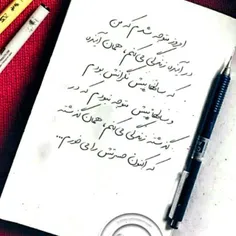 امروز متوجه شدم که من
در آینده زندگی می‌کنم، همان آینده
که سالهاپیش نگرانش بودم
و سالهاپیش متوجه نبودم که در
گذشته زندگی می‌کنم، همان گذشته
که اکنون حسرتش را می‌خورم...